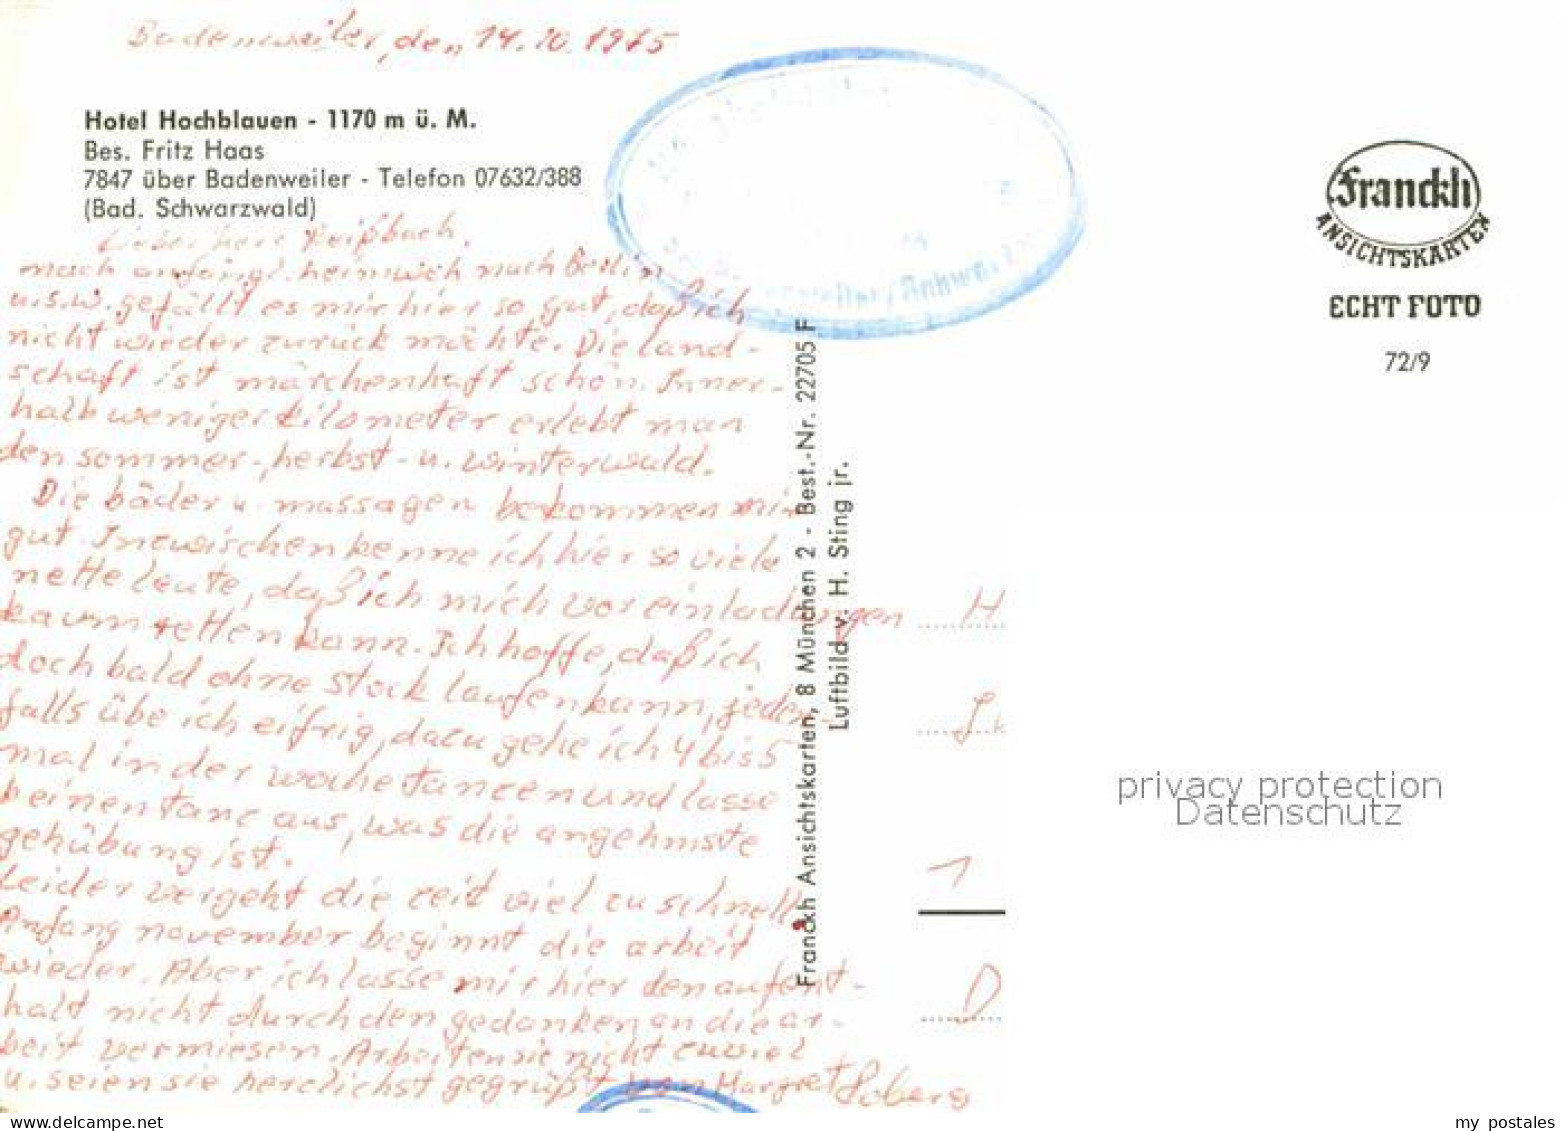 Badenweiler, den 14.10.1975
Hotel Hochblauen - 1170 m ü. M.
Bes. Fritz Haas
7847 über Badenweiler - Telefon 07632/388
(Bad. Schwarzwald)
Lieber herr
nach anfängl. heimweh nach Berlin
u.s.w. gefällt es mir hier so gut, daß ich
nicht wieder zurück möchte. Die land-
schaft ist märchenhaft schön. Inner-
halb weniger kilometer erlebt man
den sommer-, herbst- u. winterwald.
Die bäder u. massagen bekommen mir
gut. Inzwischen kenne ich hier so viele
nette leute, daß ich mich vor einladungen
kaum retten kann. Ich hoffe, daß ich
doch bald ohne stock laufen kann, jeden-
falls übe ich eifrig, dazu gehe ich 4 bis 5
mal in der woche tanzen und lasse
keinen tanz aus, was die angehmste
gehübung ist.
Leider vergeht die zeit viel zu schnell
Anfang november beginnt die arbeit
wieder. Aber ich lasse mir hier den aufent-
halt nicht durch den gedanken an die ar-
beit vermiesen. Arbeiten sie nicht zuviel
u. seien sie herzlichst gegrüßt von Margret
Franckh Ansichtskarten, 8 München 2 - Best.-Nr. 22705 F
Luftbild v. H. Sting jr.
Franckh
ANSICHTSKARTEN
ECHT FOTO
72/9
H
1
D
privacy protection
Datenschutz
www.delcampe.net
my_postales